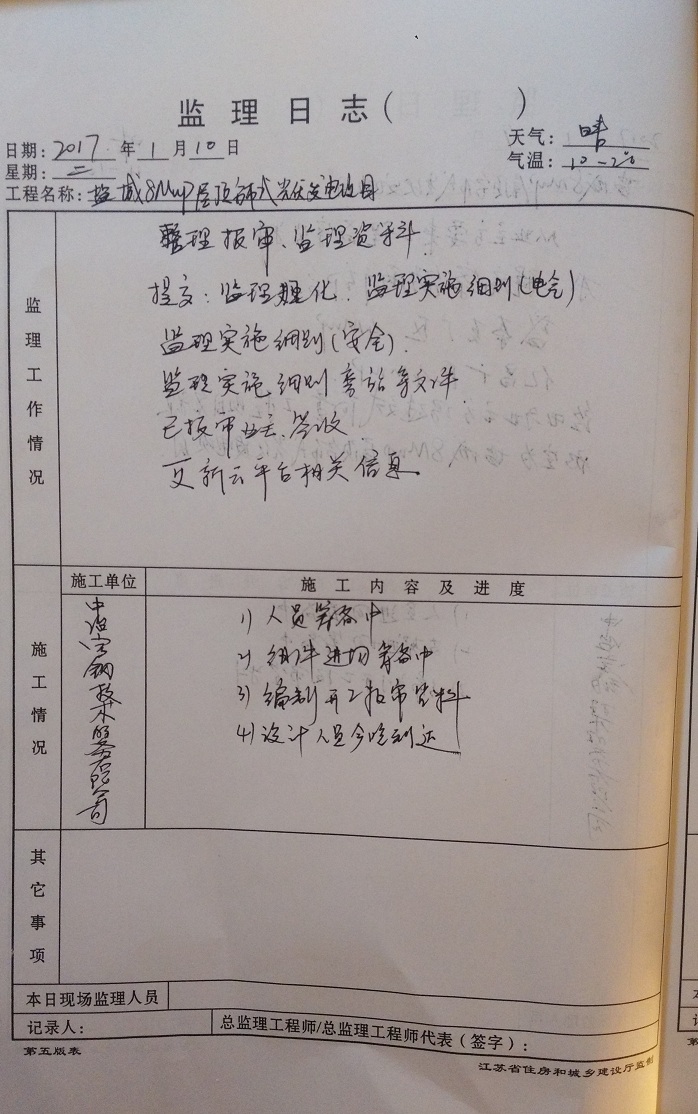 监理日志（ ）
日期：2017年1月10日
天气：晴
星期：二
气温：10-2°
工程名称：盐城8MWp屋顶分布式光伏发电项目
监理工作情况
整理报审、监理资料
提交：监理规化、监理实施细则（电气）
监理实施细则（安全）.
监理实施细则旁站等文件
已报审业主、签收
更新云平台相关信息.
施工情况
施工单位
施工内容及进度
中冶宝钢技术服务有限公司
1）人员筹备中
2）组件进场筹备中
3）编制开工报审资料
4）设计人员今晚到达
其它事项
本日现场监理人员
记录人：
总监理工程师/总监理工程师代表（签字）：
第五版表
江苏省住房和城乡建设厅监制